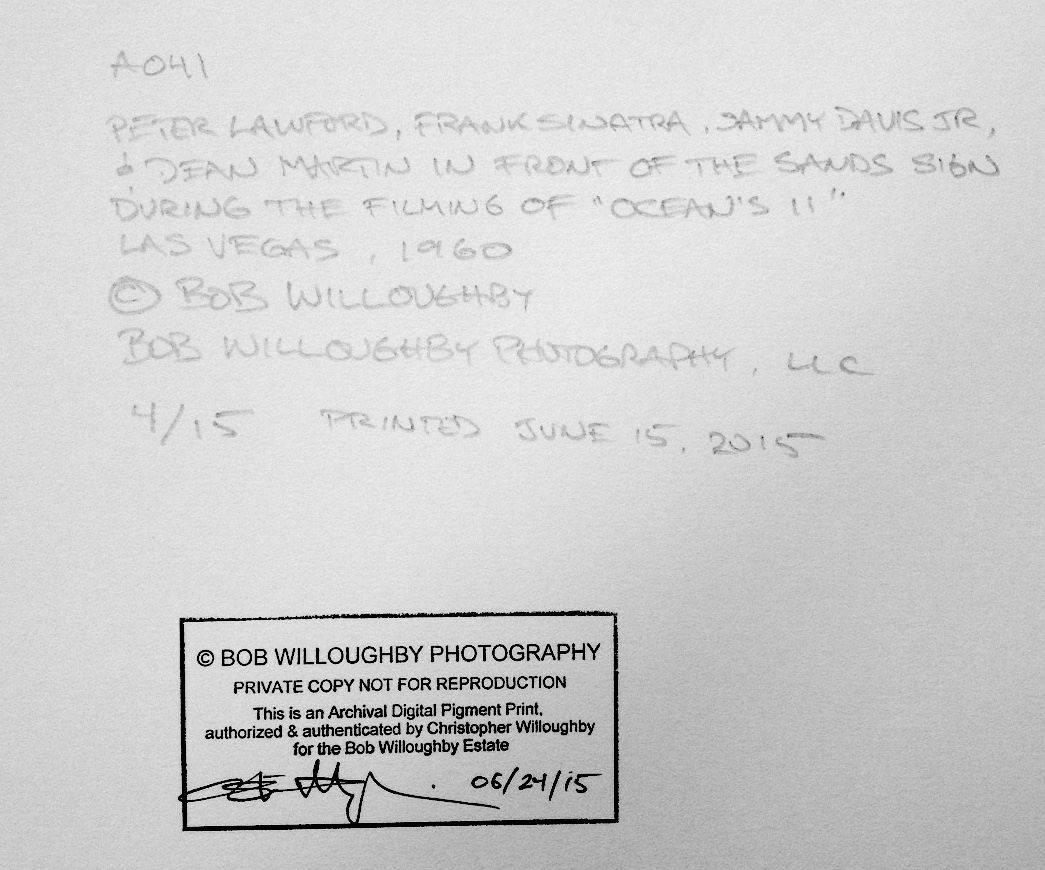 A041
PETER LAWFORD, FRANK SINATRA, SAMMY DAVIS JR,
& DEAN MARTIN IN FRONT OF THE SANDS SIGN
DURING THE FILMING OF "OCEAN'S 11"
LAS VEGAS, 1960
© BOB WILLOUGHBY
BOB WILLOUGHBY PHOTOGRAPHY, LLC
4/15 PRINTED JUNE 15, 2015
© BOB WILLOUGHBY PHOTOGRAPHY
PRIVATE COPY NOT FOR REPRODUCTION
This is an Archival Digital Pigment Print,
authorized & authenticated by Christopher Willoughby
for the Bob Willoughby Estate
06/24/15